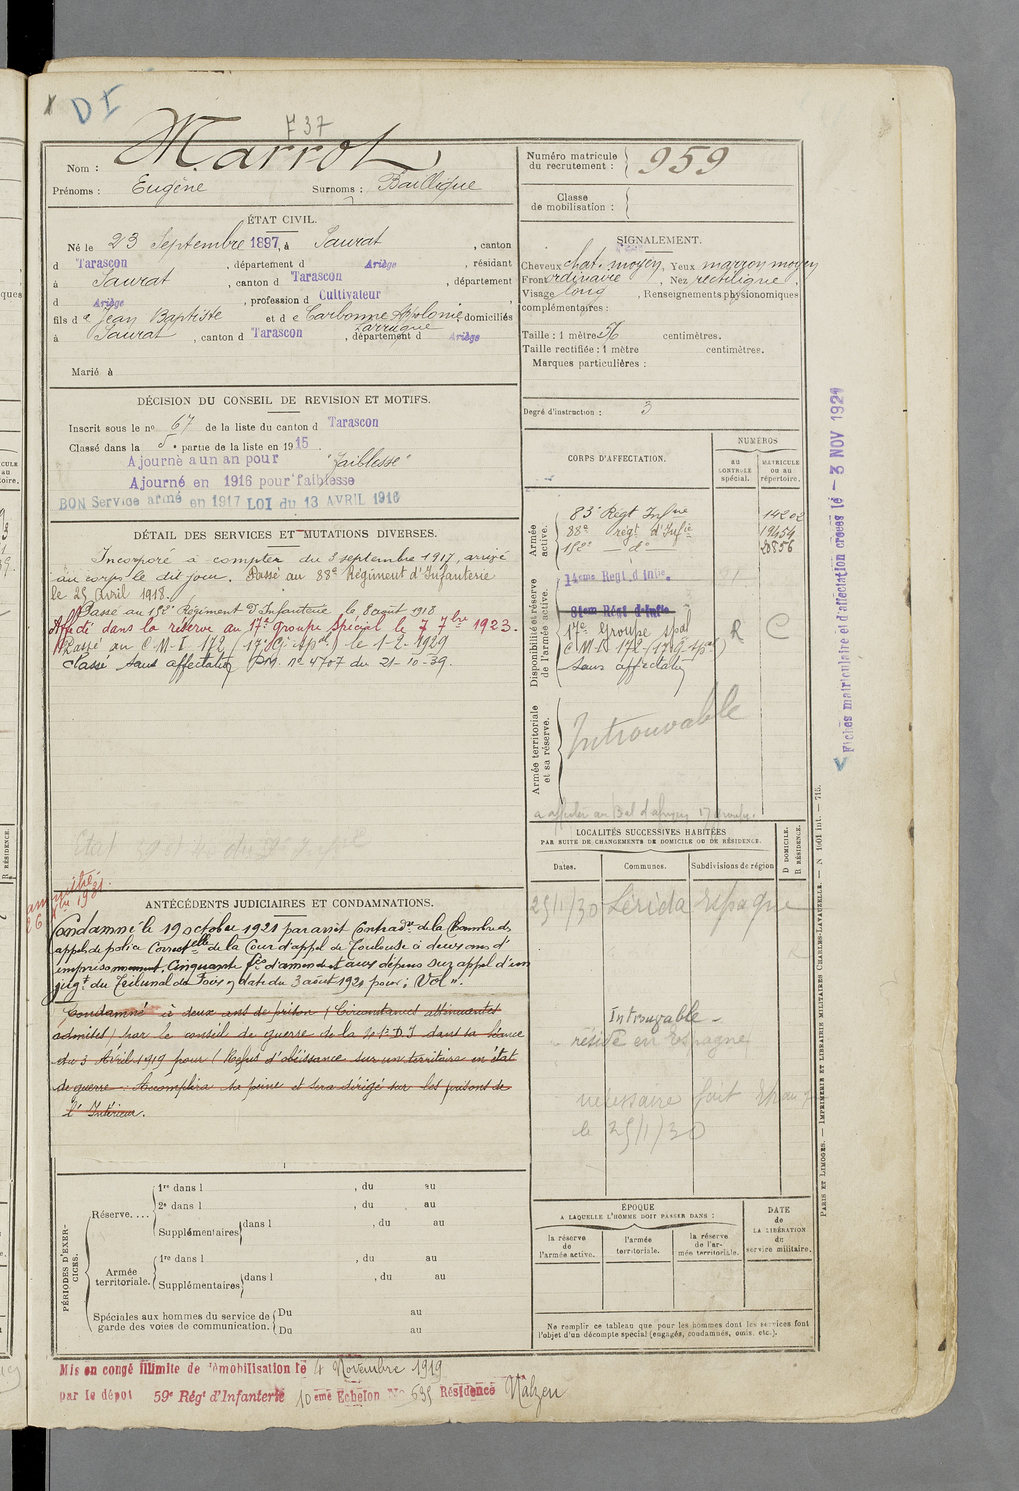 D I
F 37
Nom : Marrot
Prénoms : Eugène Surnoms : Baillique
Numéro matricule du recrutement : 959
Classe de mobilisation :
ÉTAT CIVIL.
Né le 23 Septembre 1897, à Saurat, canton
d Tarascon, département d Ariège, résidant
à Saurat, canton d Tarascon, département
d Ariège, profession d Cultivateur,
fils de Jean Baptiste et de Carbonne Appolonie domiciliés
à Saurat, canton d Tarascon, département d Ariège
Marié à
SIGNALEMENT.
Cheveux chat. moyen, Yeux marron moyen
Front ordinaire, Nez rectiligne,
Visage long, Renseignements physionomiques
complémentaires :
Taille : 1 mètre 56 centimètres.
Taille rectifiée : 1 mètre centimètres.
Marques particulières :
Degré d'instruction : 3
DÉCISION DU CONSEIL DE REVISION ET MOTIFS.
Inscrit sous le no 67 de la liste du canton d Tarascon
Classé dans la 5e partie de la liste en 1915
Ajourné à un an pour "faiblesse"
Ajourné en 1916 pour faiblesse
BON Service armé en 1917 LOI du 13 AVRIL 1916
DÉTAIL DES SERVICES ET MUTATIONS DIVERSES.
Incorporé à compter du 3 septembre 1917, arrivé
au corps le dit jour. Passé au 88e Régiment d'Infanterie
le 25 Avril 1918.
Passé au 152e Régiment d'Infanterie le 8 août 1918
Affecté dans la réserve au 17e groupe spécial le 7 7bre 1923.
Passé au C M. I. 172 (17e Gr Spal) le 1-2-1929
Classé sans affectation PM. no 4707 du 21-10-39.
CORPS D'AFFECTATION.
NUMÉROS
au CONTROLE spécial.
MATRICULE ou au répertoire.
Armée active.
83e Regt Infrie 14202
88e regt d'Infie 19454
152e — do — 20856
Disponibilité et réserve de l'armée active.
14eme Regt. d'Infie.
81em Régt d'Infie
17e Groupe spal R C
C M I 172 (17e G. spal)
Sans affectation
Armée territoriale et sa réserve.
Introuvable
Fiches matriculaire et d'affectation créées le - 3 NOV 1921
LOCALITÉS SUCCESSIVES HABITÉES
PAR SUITE DE CHANGEMENTS DE DOMICILE OU DE RÉSIDENCE.
D DOMICILE. R RÉSIDENCE.
Dates. Communes. Subdivisions de région
25/1/30 Lérida Espagne
Introuvable -
réside en Espagne
nécessaire fait
le 25/1/30
amnistié.
ANTÉCÉDENTS JUDICIAIRES ET CONDAMNATIONS.
Condamné le 19 octobre 1921 par arrêt Contradre de la Chambre des
appels de police Correctelle de la Cour d'appel de Toulouse à deux ans d'
emprisonnement, Cinquante fcs d'amende et aux dépens sur appel d'un
jugt du Tribunal de Foix en date du 3 août 1921 pour : Vol".
Condamné à deux ans de prison (Circonstances atténuantes
admises) par le conseil de guerre de la 41e D.I dans sa séance
du 3 Avril 1919 pour (Refus d'obéissance sur un territoire en état
de guerre. Accomplira sa peine et sera dirigé sur les prisons de
l'Intérieur.
PÉRIODES D'EXERCICES.
Réserve.... 1re dans l , du au
2e dans l , du au
Supplémentaires dans l , du au
Armée territoriale. 1re dans l , du au
Supplémentaires dans l , du au
Spéciales aux hommes du service de garde des voies de communication. Du au
Du au
ÉPOQUE
A LAQUELLE L'HOMME DOIT PASSER DANS :
la réserve de l'armée active.
l'armée territoriale.
la réserve de l'armée territoriale.
DATE de LA LIBÉRATION du service militaire.
Ne remplir ce tableau que pour les hommes dont les services font
l'objet d'un décompte spécial (engagés, condamnés, omis, etc.).
PARIS ET LIMOGES. — IMPRIMERIE ET LIBRAIRIE MILITAIRES CHARLES-LAVAUZELLE. — N 1001 int. — 715.
Mis en congé illimité de démobilisation le 4 Novembre 1919
par le dépot 59e Régt d'Infanterie 10eme Echelon No 535 Résidence Nalzen